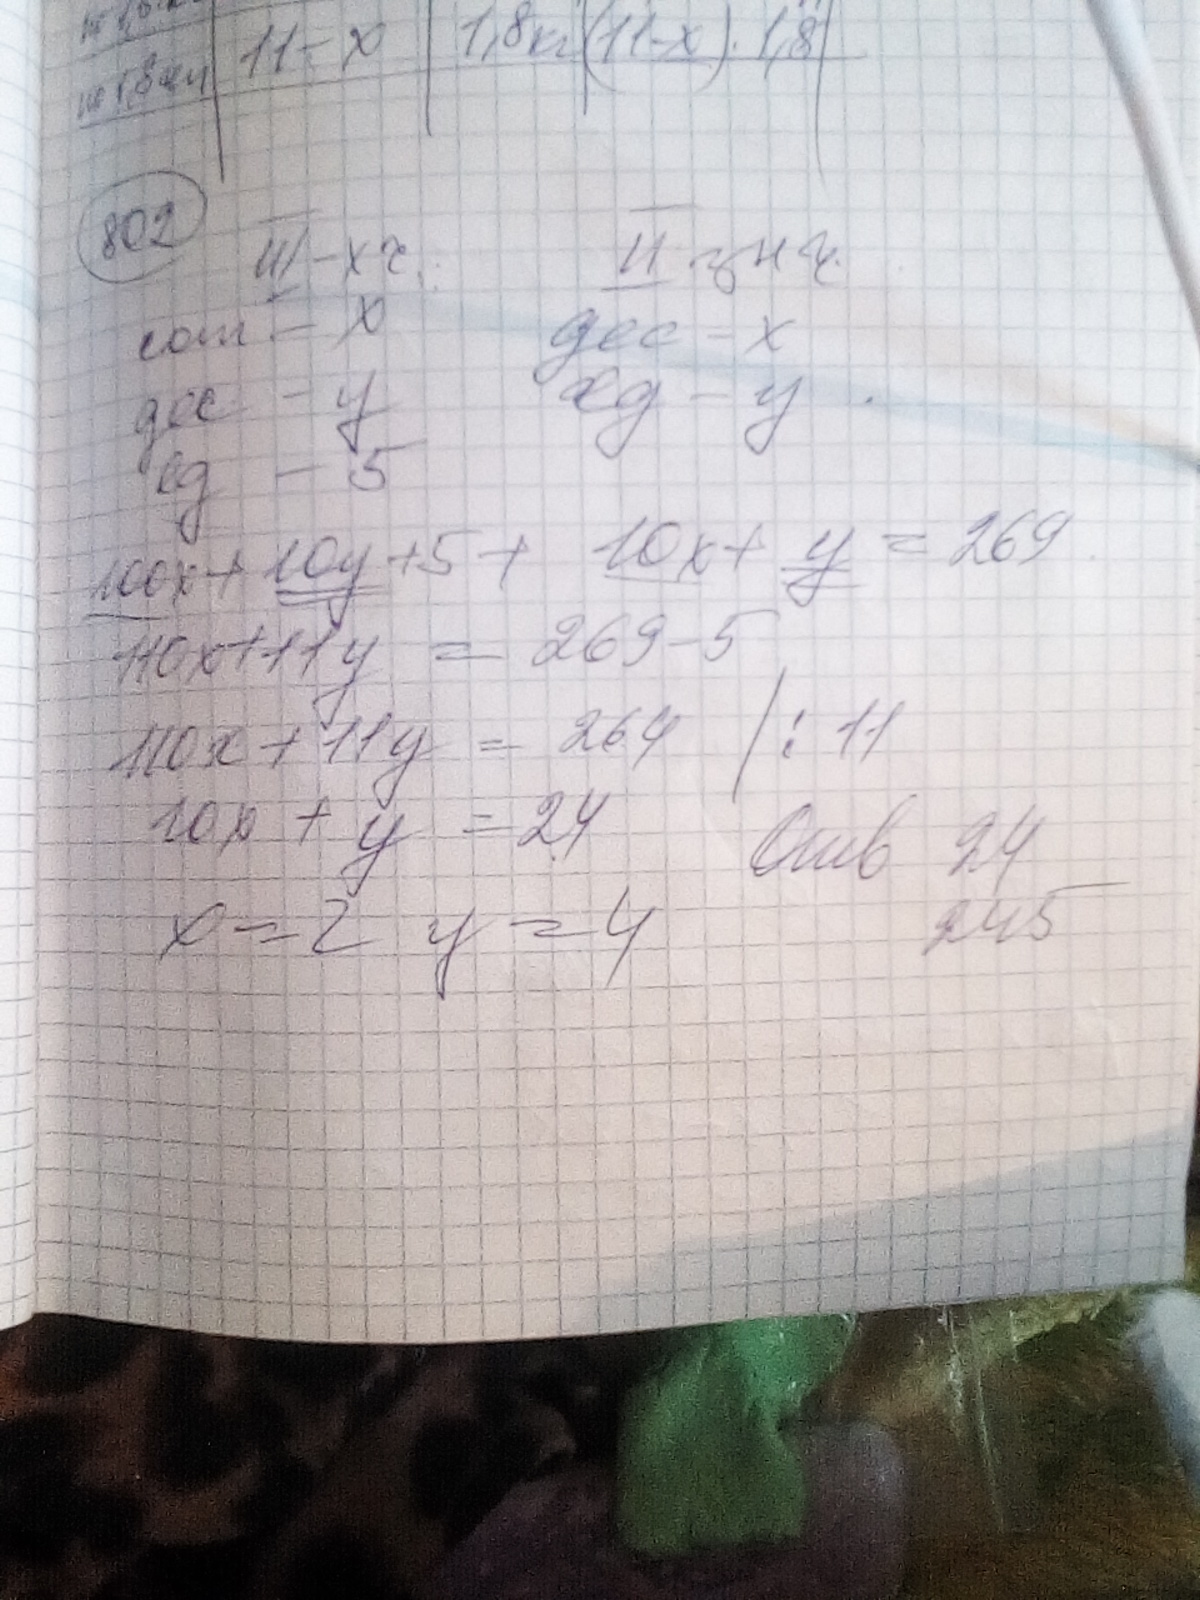 11 - x 1,8кг (11-x) · 1,8
802
III - х ч. II знч.
сот - x дес - x
дес - y ед - y
ед - 5
100x + 10y + 5 + 10x + y = 269
110x + 11y = 269 - 5
110x + 11y = 264 / : 11
10x + y = 24 Отв 24
x = 2 y = 4 245